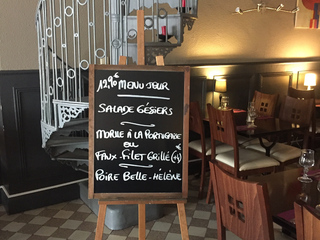 12,90€ MENU JOUR
SALADE GÉSIERS
MORUE À LA PORTUGAISE
OU
FAUX-FILET GRILLÉ (+1€)
POIRE BELLE-HÉLÈNE